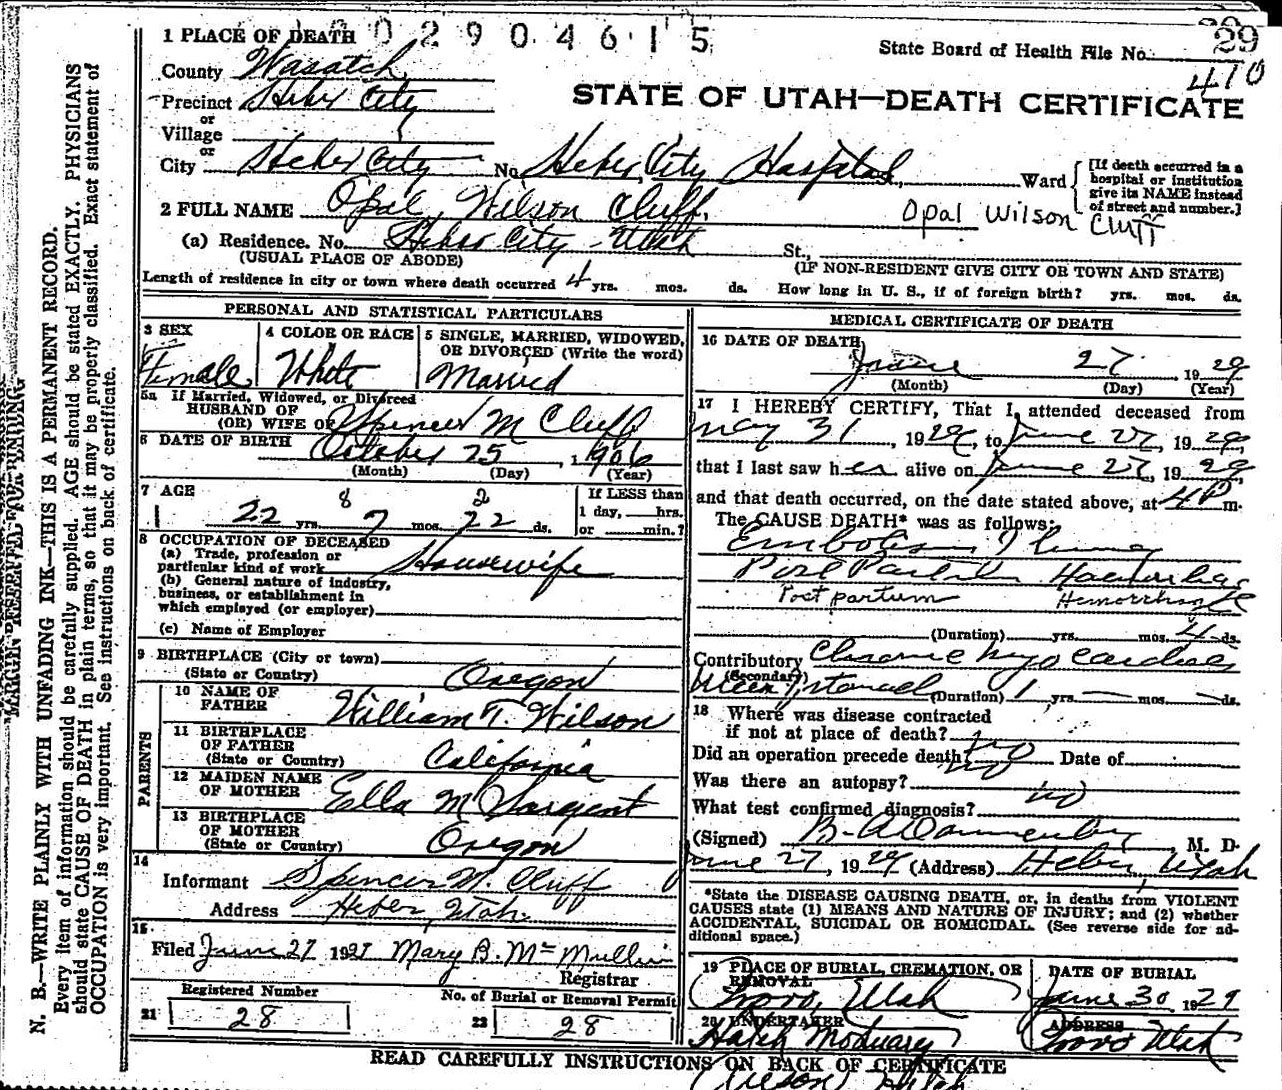 1 PLACE OF DEATH 0 2 9 0 4 6 1 5
State Board of Health File No. 29
410
County Wasatch
Precinct Heber City
or
Village
or
City Heber City No. Heber City Hospital Ward
[If death occurred in a hospital or institution give its NAME instead of street and number.]
STATE OF UTAH—DEATH CERTIFICATE
2 FULL NAME Opal Wilson Cluff. Opal Wilson Cluff
(a) Residence. No. Heber City Utah St.,
(USUAL PLACE OF ABODE) (IF NON-RESIDENT GIVE CITY OR TOWN AND STATE)
Length of residence in city or town where death occurred 4 yrs. mos. ds. How long in U. S., if of foreign birth? yrs. mos. ds.
PERSONAL AND STATISTICAL PARTICULARS
3 SEX Female
4 COLOR OR RACE White
5 SINGLE, MARRIED, WIDOWED, OR DIVORCED (Write the word) Married
5a If Married, Widowed, or Divorced
HUSBAND OF
(OR) WIFE OF Spencer M Cluff
6 DATE OF BIRTH October 25, 1906
(Month) (Day) (Year)
7 AGE 8 2
22 yrs. 7 mos. 22 ds.
If LESS than
1 day, hrs.
or min.?
8 OCCUPATION OF DECEASED
(a) Trade, profession or
particular kind of work Housewife
(b) General nature of industry,
business, or establishment in
which employed (or employer)
(c) Name of Employer
9 BIRTHPLACE (City or town)
(State or Country) Oregon
PARENTS
10 NAME OF FATHER William T. Wilson
11 BIRTHPLACE OF FATHER
(State or Country) California
12 MAIDEN NAME OF MOTHER Ella M Sargent
13 BIRTHPLACE OF MOTHER
(State or Country) Oregon
14
Informant Spencer M. Cluff
Address Heber, Utah.
15
Filed June 27 1929 Mary B. Mc Mullin
Registrar
Registered Number
21 28
No. of Burial or Removal Permit
22 28
MEDICAL CERTIFICATE OF DEATH
16 DATE OF DEATH
June 27 1929
(Month) (Day) (Year)
17 I HEREBY CERTIFY, That I attended deceased from
May 31, 1929, to June 27, 1929,
that I last saw her alive on June 27, 1929
and that death occurred, on the date stated above, at 4 P m.
The CAUSE DEATH* was as follows:
Embolism
Post Partum Haemorrhage
Post partum Hemorrhage
(Duration) yrs. mos. 4 ds.
Contributory Chronic myocarditis
(Secondary)
(Duration) 1 yrs. — mos. — ds.
18 Where was disease contracted
if not at place of death?
Did an operation precede death? no Date of
Was there an autopsy? no
What test confirmed diagnosis?
(Signed) B. A. Dannenberg, M. D.
June 27, 1929 (Address) Heber, Utah
*State the DISEASE CAUSING DEATH, or, in deaths from VIOLENT
CAUSES state (1) MEANS AND NATURE OF INJURY; and (2) whether
ACCIDENTAL, SUICIDAL OR HOMICIDAL. (See reverse side for ad-
ditional space.)
19 PLACE OF BURIAL, CREMATION, OR REMOVAL
Provo, Utah
DATE OF BURIAL
June 30 1929
20 UNDERTAKER
Hatch Mortuary
ADDRESS
Provo Utah
READ CAREFULLY INSTRUCTIONS ON BACK OF CERTIFICATE
MARGIN RESERVED FOR BINDING
N. B.—WRITE PLAINLY WITH UNFADING INK—THIS IS A PERMANENT RECORD.
Every item of information should be carefully supplied. AGE should be stated EXACTLY. PHYSICIANS
should state CAUSE OF DEATH in plain terms, so that it may be properly classified. Exact statement of
OCCUPATION is very important. See instructions on back of certificate.